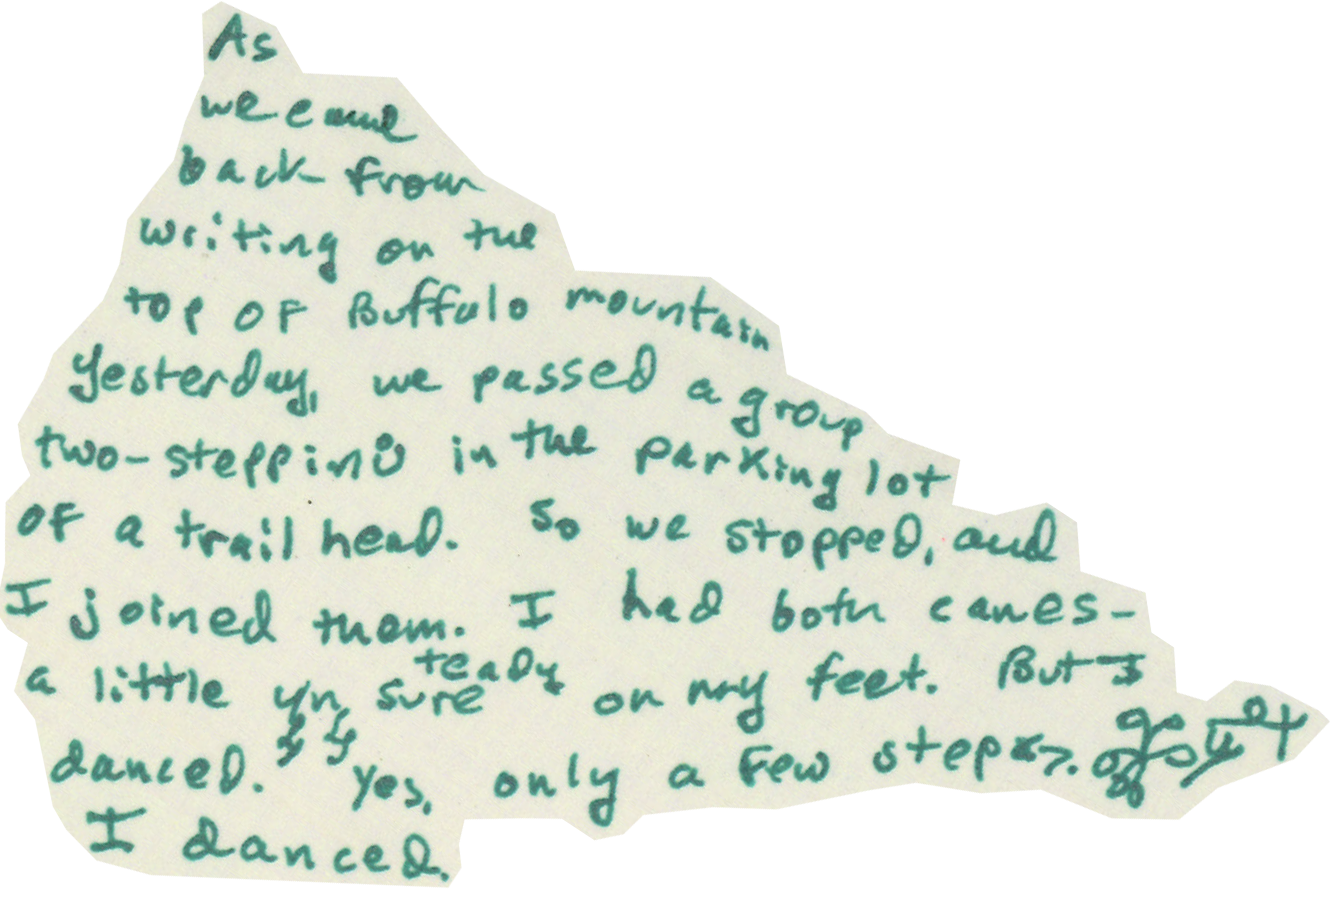 As
we came
back from
writing on the
top of Buffalo mountain
yesterday, we passed a group
two-stepping in the parking lot
of a trail head. So we stopped, and
I joined them. I had both canes-
a little un sure teady on my feet. But I
danced. Yes, only a few steps.
I danced.